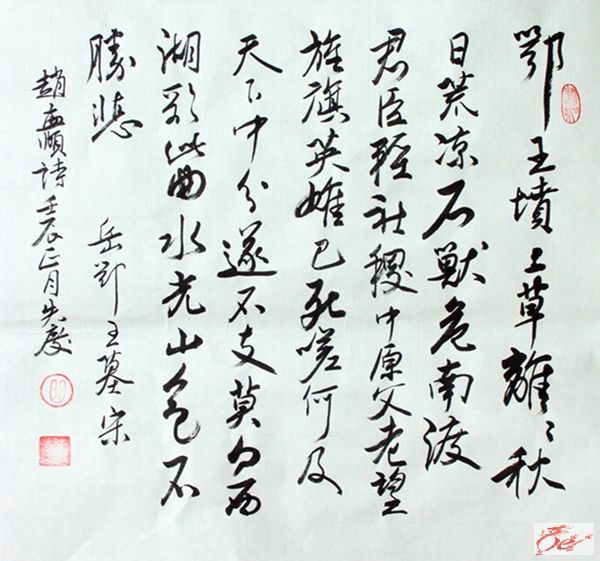 鄂王墳上草離々秋
日荒涼石獸危南渡
君臣輕社稷中原父老望
旌旗英雄已死嗟何及
天下中分遂不支莫向西
湖歌此曲水光山色不
勝悲 岳鄂王墓宋
趙孟頫詩壬辰正月